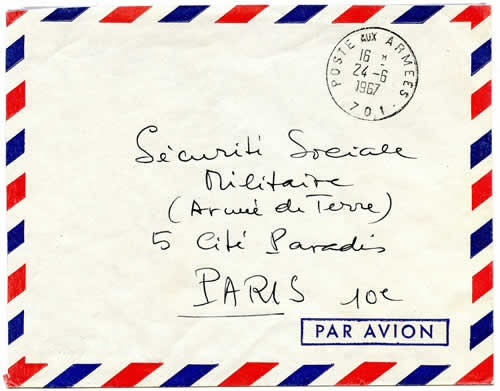 POSTE AUX ARMEES
16 H
24-6
1967
701
Sécurité Sociale
Militaire
(Armée de Terre)
5 Cité Paradis
PARIS 10e
PAR AVION